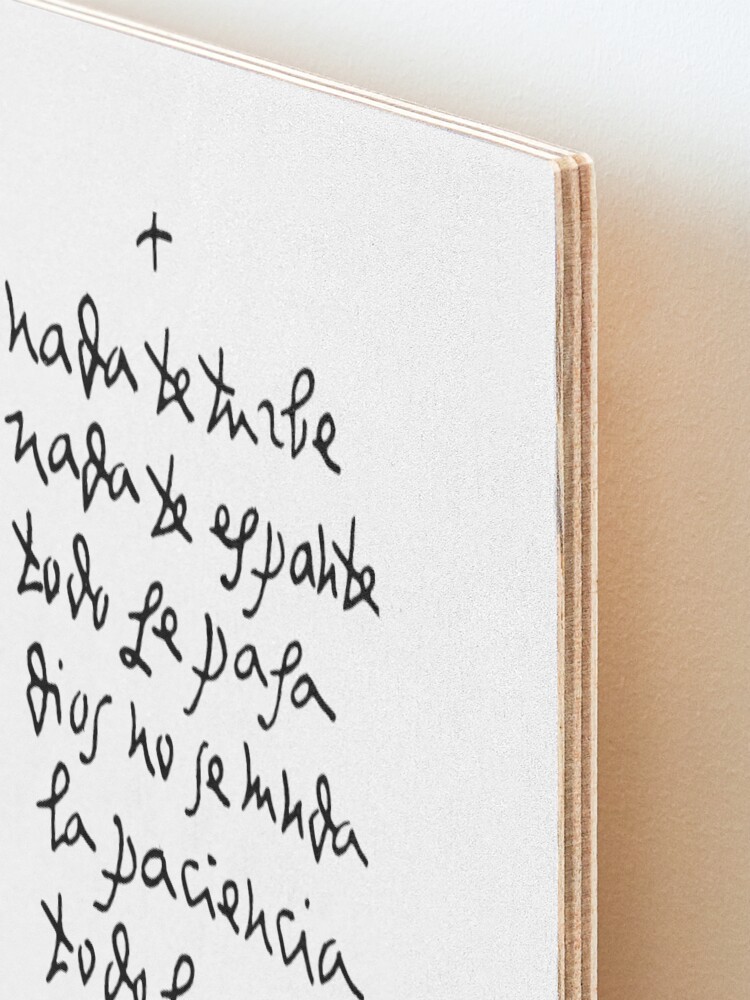 nada te turbe
nada te espante
todo se pasa
dios no se muda
la paciencia
todo l